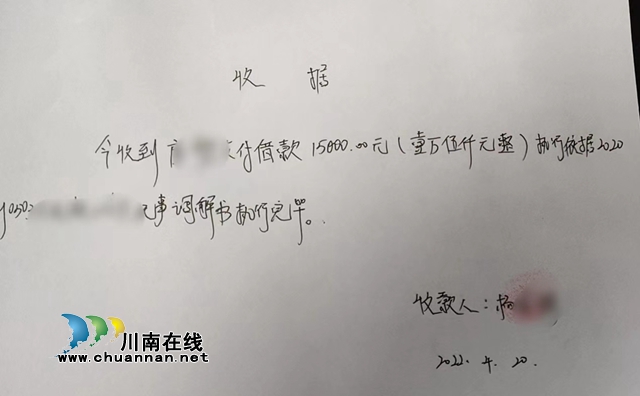 收 据
今收到 付借款 15000.00元（壹万伍仟元整）执行依据2020
事调解书执行完毕。
收款人：杨
2022.4.20.
川南在线
www.chuannan.net